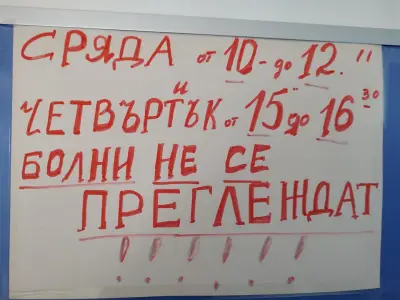 СРЯДА от 10- до 12."
и
ЧЕТВЪРТЪК от 15" до 16 30
БОЛНИ НЕ СЕ
ПРЕГЛЕЖДАТ
! ! ! ! ! !